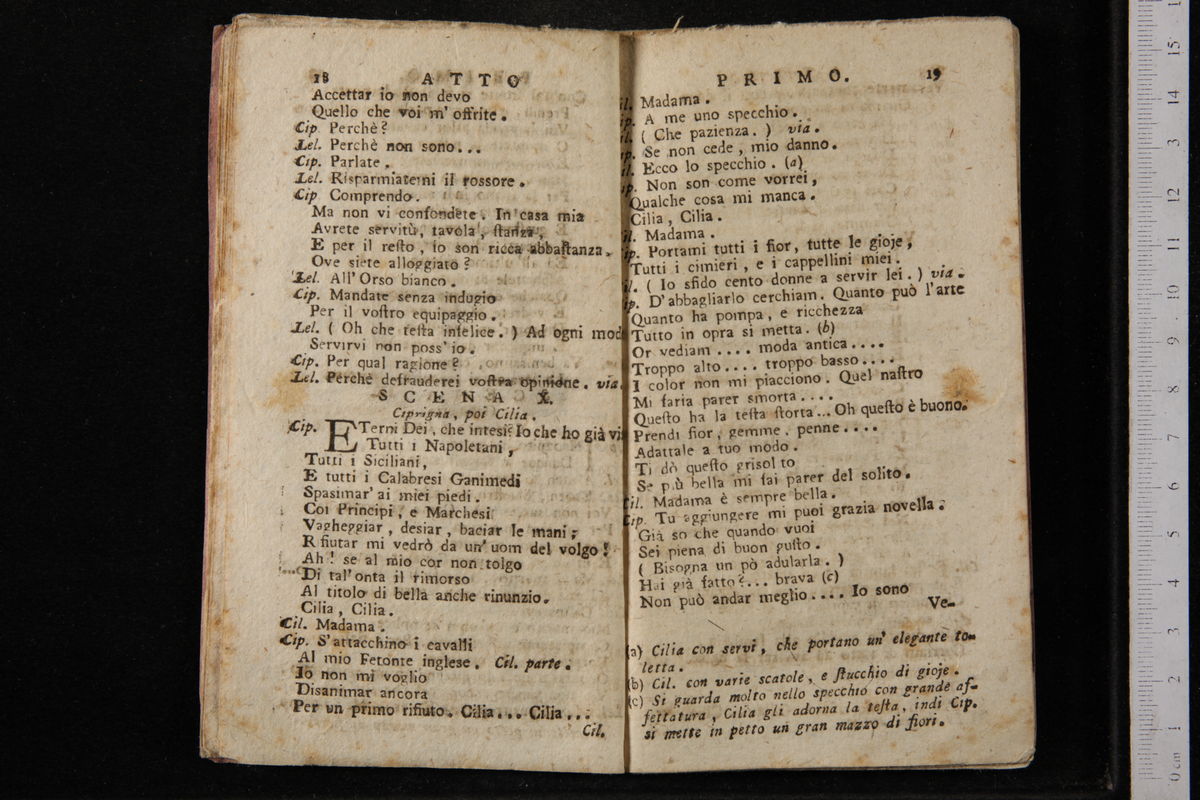 18 ATTO
Accettar io non devo
Quello che voi m' offrite.
Cip. Perchè?
Lel. Perchè non sono...
Cip. Parlate.
Lel. Risparmiatemi il rossore.
Cip Comprendo.
Ma non vi confondete. In casa mia
Avrete servitù, tavola, ſtanza,
E per il reſto, io son ricca abbaſtanza.
Ove siete alloggiato?
Lel. All' Orso bianco.
Cip. Mandate senza indugio
Per il voſtro equipaggio.
Lel. ( Oh che teſta infelice. ) Ad ogni mod
Servirvi non poss' io.
Cip. Per qual ragione?
Lel. Perchè defrauderei voſtra opinione. via.
SCENA X.
Ciprigna, poi Cilia.
Cip. ETerni Dei, che intesi? Io che ho già vi
Tutti i Napoletani,
Tutti i Siciliani,
E tutti i Calabresi Ganimedi
Spasimar' ai miei piedi.
Coi Principi, e Marchesi
Vagheggiar, desiar, baciar le mani;
Rifiutar mi vedrò da un' uom del volgo!
Ah! se al mio cor non tolgo
Di tal' onta il rimorso
Al titolo di bella anche rinunzio.
Cilia, Cilia.
Cil. Madama.
Cip. S' attacchino i cavalli
Al mio Fetonte inglese. Cil. parte.
Io non mi voglio
Disanimar ancora
Per un primo rifiuto. Cilia... Cilia...
Cil.
PRIMO. 19
il. Madama.
ip. A me uno specchio.
il. ( Che pazienza. ) via.
ip. Se non cede, mio danno.
il. Ecco lo specchio. (a)
ip. Non son come vorrei,
Qualche cosa mi manca.
Cilia, Cilia.
il. Madama.
ip. Portami tutti i fior, tutte le gioje,
Tutti i cimieri, e i cappellini miei.
il. ( Io sfido cento donne a servir lei. ) via.
ip. D' abbagliarlo cerchiam. Quanto può l' arte
Quanto ha pompa, e ricchezza
Tutto in opra si metta. (b)
Or vediam .... moda antica ....
Troppo alto .... troppo basso ....
I color non mi piacciono. Quel naſtro
Mi faria parer smorta ....
Queſto ha la teſta ſtorta ... Oh queſto è buono.
Prendi fior, gemme, penne ....
Adattale a tuo modo.
Ti dò queſto grisolito
Se più bella mi fai parer del solito.
Cil. Madama è sempre bella.
Cip. Tu aggiungere mi puoi grazia novella:
Già so che quando vuoi
Sei piena di buon guſto.
( Bisogna un pò adularla. )
Hai già fatto?... brava (c)
Non può andar meglio .... Io sono
Ve-
(a) Cilia con servi, che portano un' elegante to-
letta.
(b) Cil. con varie scatole, e ſtucchio di gioje.
(c) Si guarda molto nello specchio con grande af-
fettatura, Cilia gli adorna la teſta, indi Cip.
si mette in petto un gran mazzo di fiori.
0 cm 1 2 3 4 5 6 7 8 9 10 11 12 13 14 15